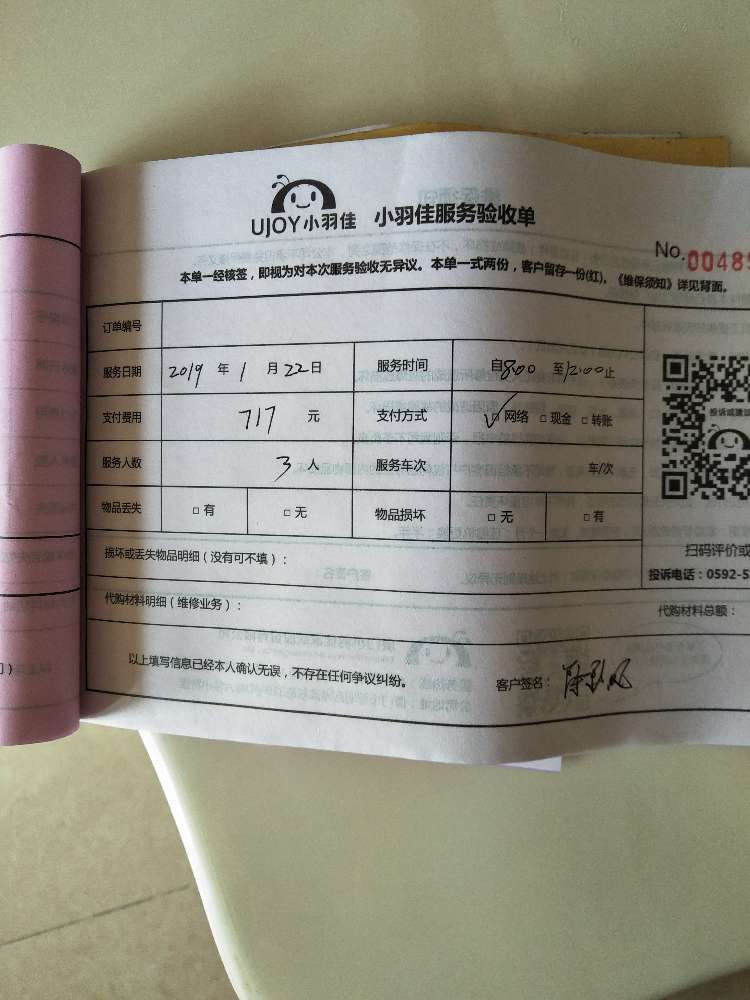 UJOY小羽佳 小羽佳服务验收单
No.0048
本单一经核签，即视为对本次服务验收无异议。本单一式两份，客户留存一份(红)。《维保须知》详见背面。
订单编号
服务日期 2019 年 1 月 22 日 服务时间 自8:00 至12:00止
支付费用 717 元 支付方式 ☑网络 □现金 □转账
服务人数 3 人 服务车次 车/次
物品丢失 □有 □无 物品损坏 □无 □有
投诉或建议
扫码评价或
投诉电话：0592-5
损坏或丢失物品明细（没有可不填）：
代购材料明细（维修业务）： 代购材料总额：
以上填写信息已经本人确认无误，不存在任何争议纠纷。 客户签名：